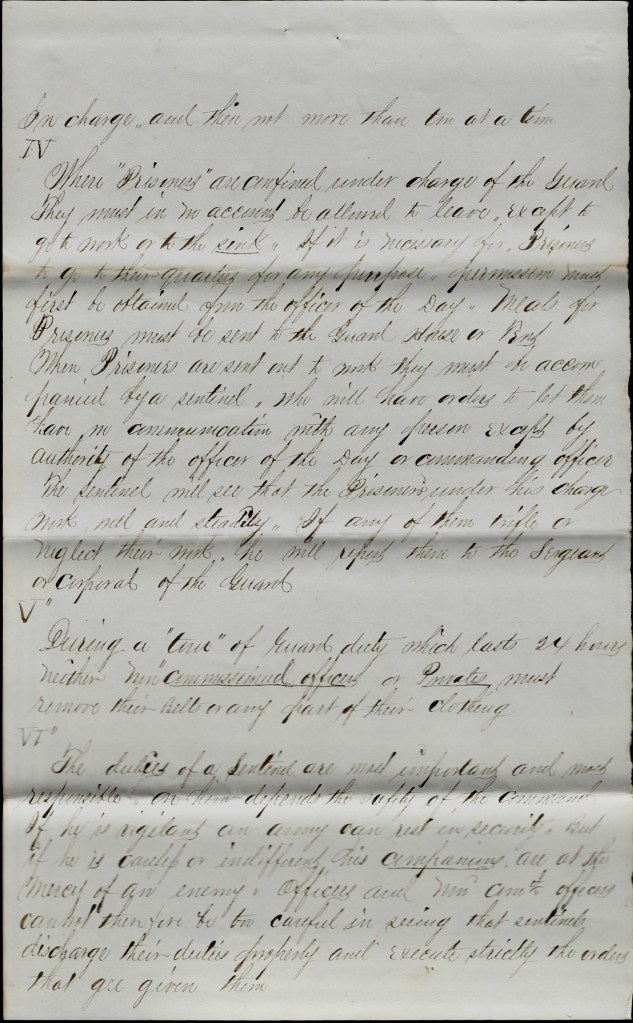 In charge, and then not more than two at a time
IV
Where "Prisoners" are confined under charge of the Guard
They must in no account be allowed to leave, except to
go to work or to the sink. If it is necessary for Prisoners
to go to their quarters for any purpose, permission must
first be obtained from the officer of the Day. Meals for
Prisoners must be sent to the Guard House or Tent
When Prisoners are sent out to work they must be accom
panied by a sentinel, who will have orders to let them
have no communication with any person except by
authority of the officer of the Day or commanding officer
The sentinel will see that the Prisoners under his charge
work well and steadily. If any of them trifle or
neglect their work, he will report them to the Sergeant
or corporal of the Guard
V"
During a "tour" of Guard duty which lasts 24 hours
neither Non "commissioned officers or Privates must
remove their Belts or any part of their clothing
VI"
The duties of a Sentinel are most important and most
responsible. on him depends the safety of the command
If he is vigilant an army can rest in security. But
if he is careless or indifferent, his companions are at the
mercy of an enemy. Officers and Non Comd officers
cannot therefore be too careful in seeing that sentinels
discharge their duties properly and execute strictly the orders
that are given them